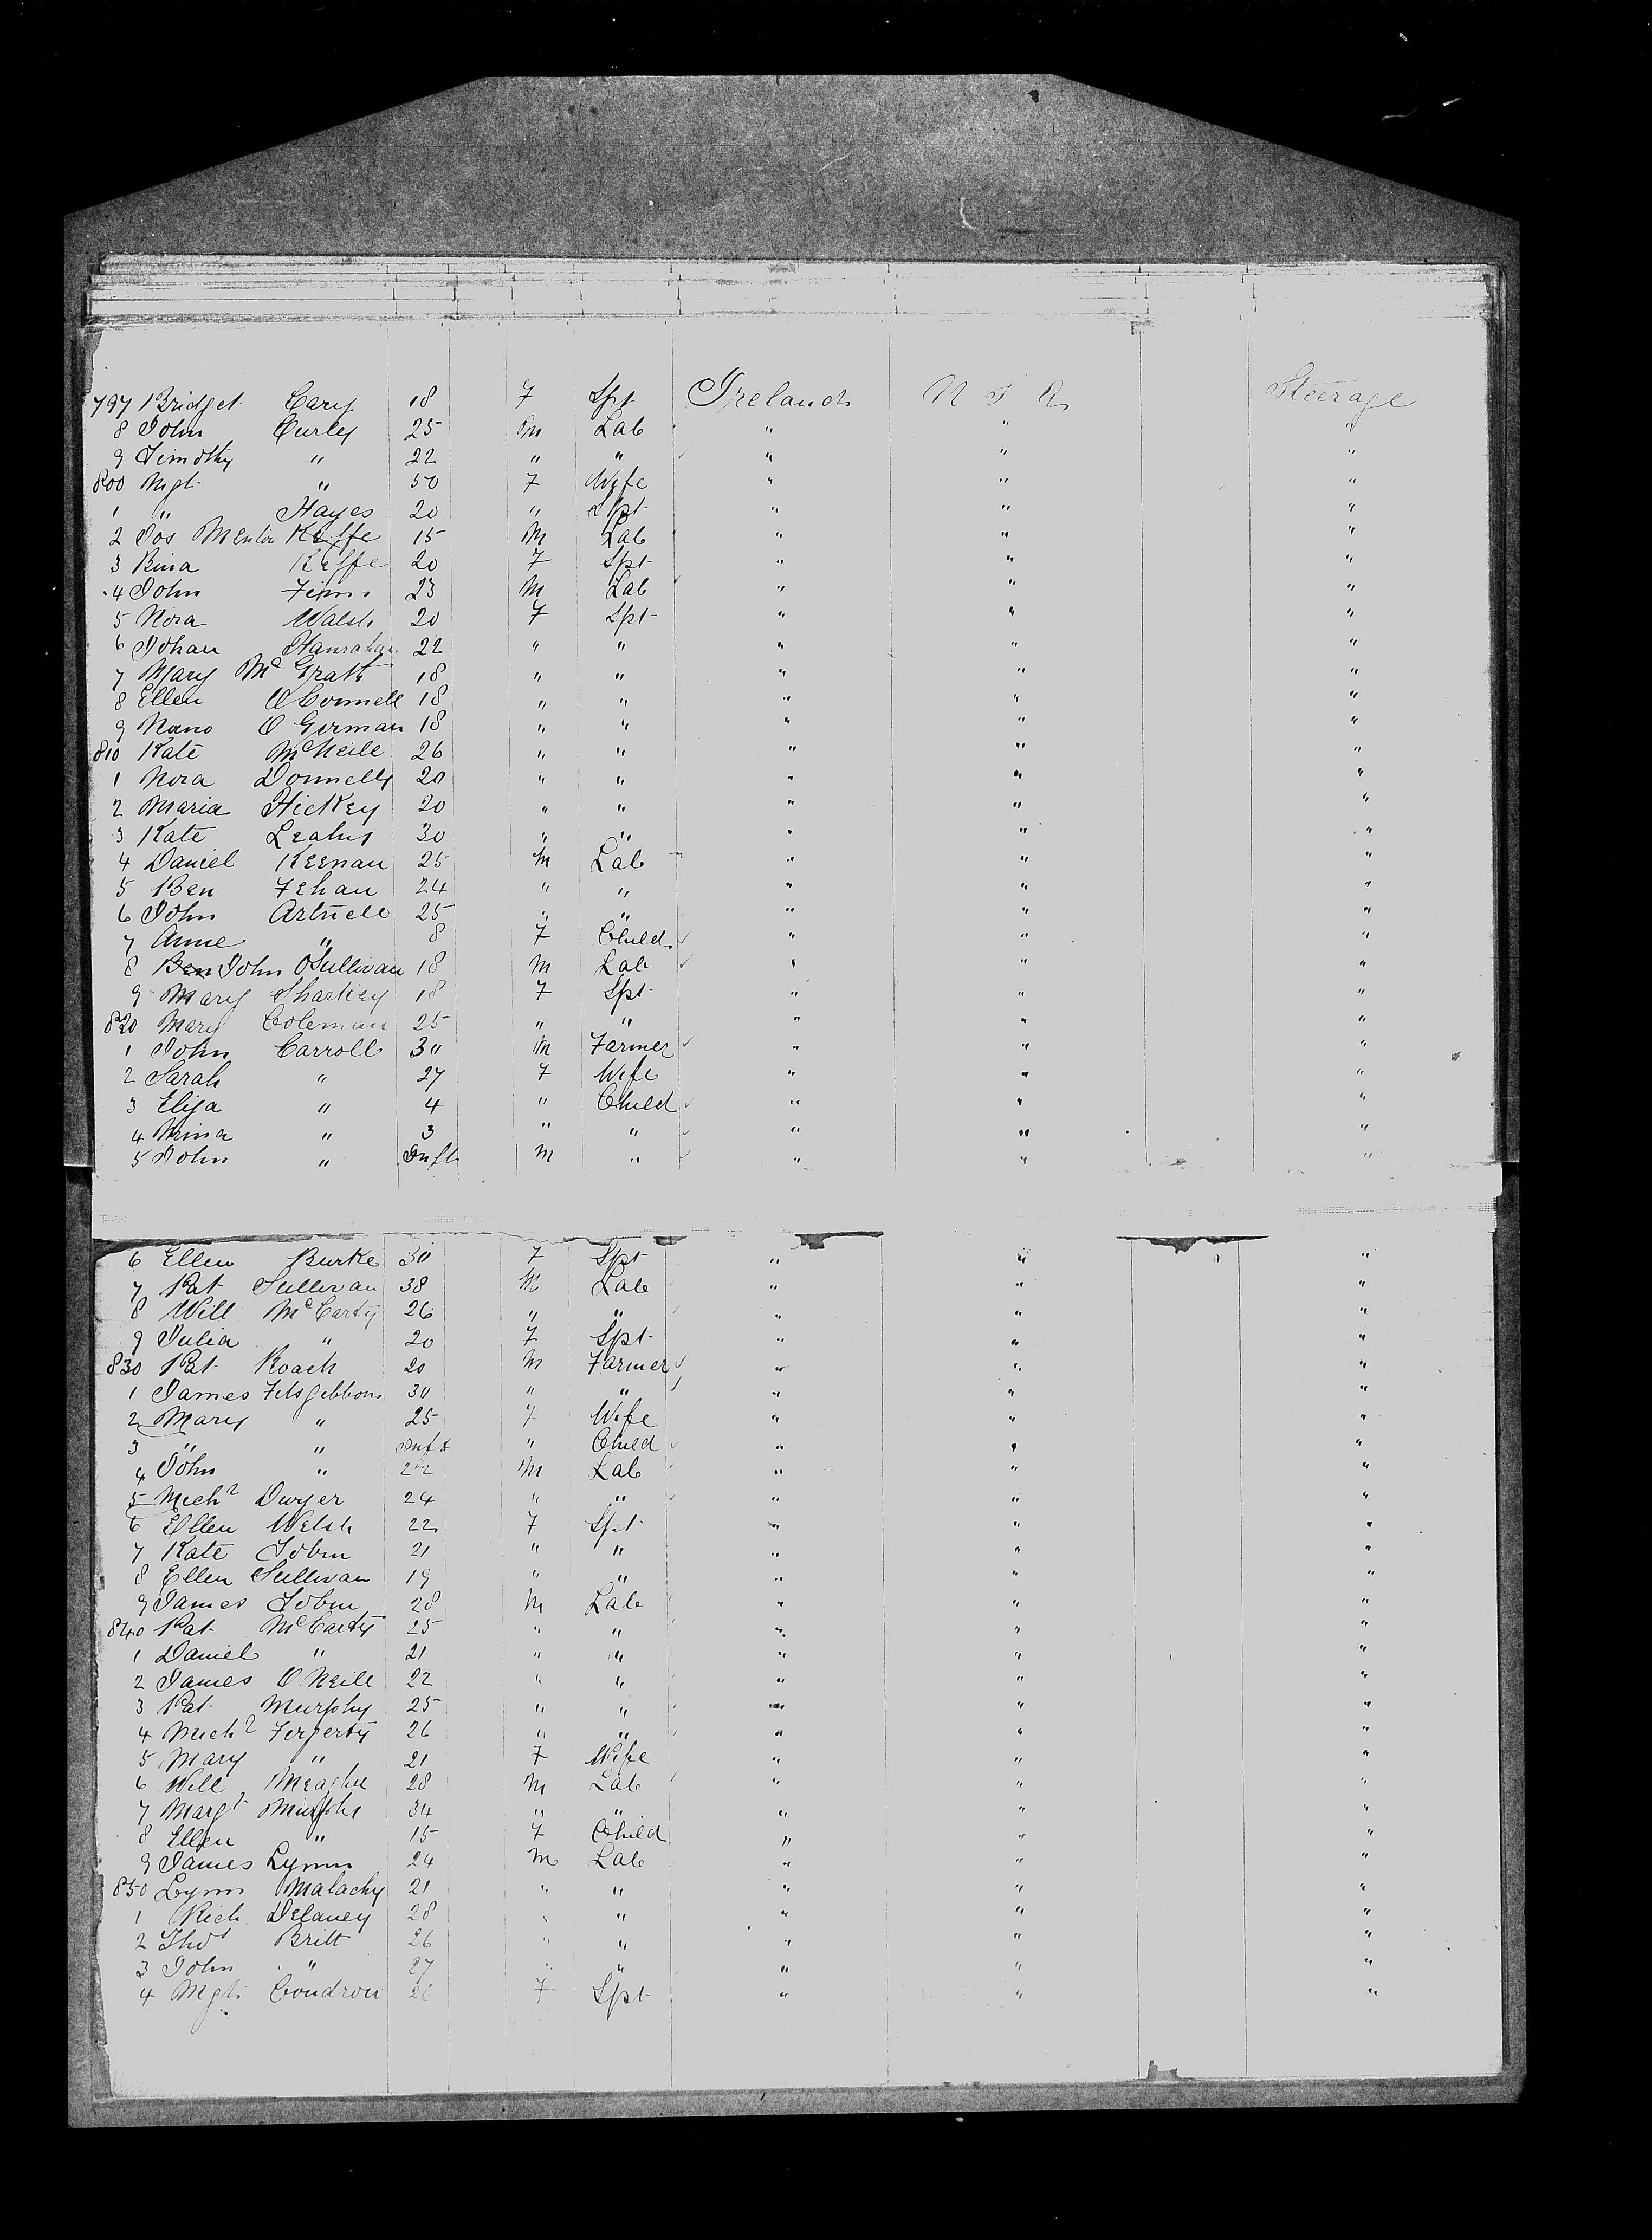 797 Bridget Cary 18 F Spt Ireland U S A Steerage
8 John Curley 25 M Lab " " "
9 Timothy " 22 " " " " "
800 Mgt " 50 F Wife " " "
1 " Hayes 20 " Spt " " "
2 Jos Keffe 15 M Lab " " "
3 Bina Keffe 20 F Spt " " "
4 John Finn 23 M Lab " " "
5 Nora Walsh 20 F Spt " " "
6 Johan Hanrahan 22 " " " " "
7 Mary McGrath 18 " " " " "
8 Ellen O Connell 18 " " " " "
9 Nano O Gorman 18 " " " " "
810 Kate McNeill 26 " " " " "
1 Nora Donnelly 20 " " " " "
2 Maria Hickey 20 " " " " "
3 Kate Leahy 30 " " " " "
4 Daniel Keenan 25 M Lab " " "
5 Ben Fehan 24 " " " " "
6 John 25 " " " " "
7 Anne " 8 F Child " " "
8 Ben John OSullivan 18 M Lab " " "
9 Mary Sharkey 18 F Spt " " "
820 Mary Coleman 25 " " " " "
1 John Carroll 30 M Farmer " " "
2 Sarah " 27 F Wife " " "
3 Eliza " 4 " Child " " "
4 Mina " 3 " " " " "
5 John " Inft M " " " "
6 Ellen Burke 30 F Spt " " "
7 Pat Sullivan 38 M Lab " " "
8 Will McCarty 26 " " " " "
9 Julia " 20 F Spt " " "
830 Pat Roach 20 M Farmer " " "
1 James Fitsgibbons 30 " " " " "
2 Mary " 25 F Wife " " "
3 " " Inft " Child " " "
4 John " 22 M Lab " " "
5 Michl Dwyer 24 " " " " "
6 Ellen Welsh 22 F Spt " " "
7 Kate Tobin 21 " " " " "
8 Ellen Sullivan 19 " " " " "
9 James Tobin 28 M Lab " " "
840 Pat McCarty 25 " " " " "
1 Daniel " 21 " " " " "
2 James O Neill 22 " " " " "
3 Pat Murphy 25 " " " " "
4 Michl Fergerty 26 " " " " "
5 Mary " 21 F Wife " " "
6 Will Meagher 28 M Lab " " "
7 Margt Murphy 34 " " " " "
8 Ellen " 15 F Child " " "
9 James Lynn 24 M Lab " " "
850 Lynn Malachy 21 " " " " "
1 Rich Delaney 28 " " " " "
2 Thos Britt 26 " " " " "
3 John " 27 " " " " "
4 Mgt Condron 26 F Spt " " "